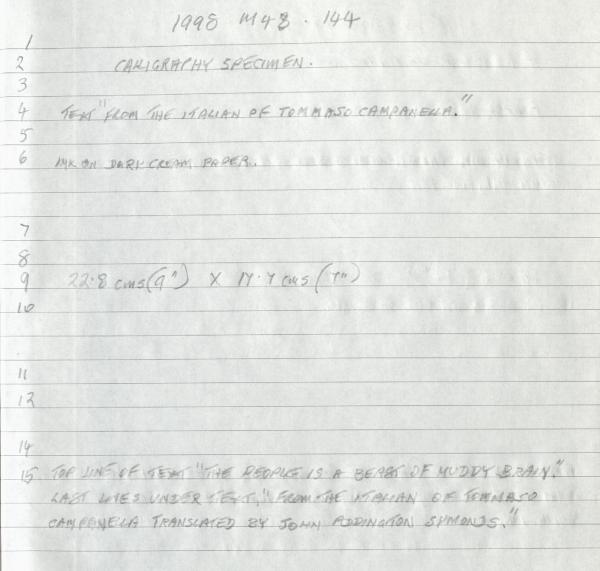 1998 M48.144
1
2 CALLIGRAPHY SPECIMEN.
3
4 TEXT "FROM THE ITALIAN OF TOMMASO CAMPANELLA."
5
6 INK ON DARK CREAM PAPER.
7
8
9 22.8 cms (9") X 17.7 cms (7")
10
11
12
14
15 TOP LINE OF TEXT "THE PEOPLE IS A BEAST OF MUDDY BRAIN."
LAST LINES UNDER TEXT, "FROM THE ITALIAN OF TOMMASO
CAMPANELLA TRANSLATED BY JOHN ADDINGTON SYMONDS."